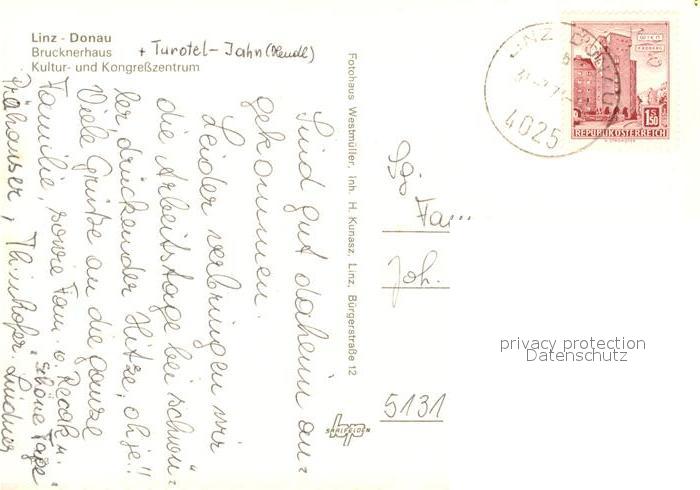 Linz - Donau
Brucknerhaus
Kultur- und Kongreßzentrum
+ Turotel-Jahn (Hendl)
Sind gut daheim an=
gekommen.
Leider verbringen wir
die Arbeitstage bei schwü=
ler, drückender Hitze, oh je!!
Viele Grüße an die ganze
Familie, sowie Fam. v. u.
schöne Tage
Lindner
Fotohaus Westmüller, Inh. H. Kunasz, Linz, Bürgerstraße 12
LINZ
4025
1.50
REPUBLIK ÖSTERREICH
Sg.
Fa...
Joh.
5131
bp
SAALFELDEN
privacy protection
Datenschutz